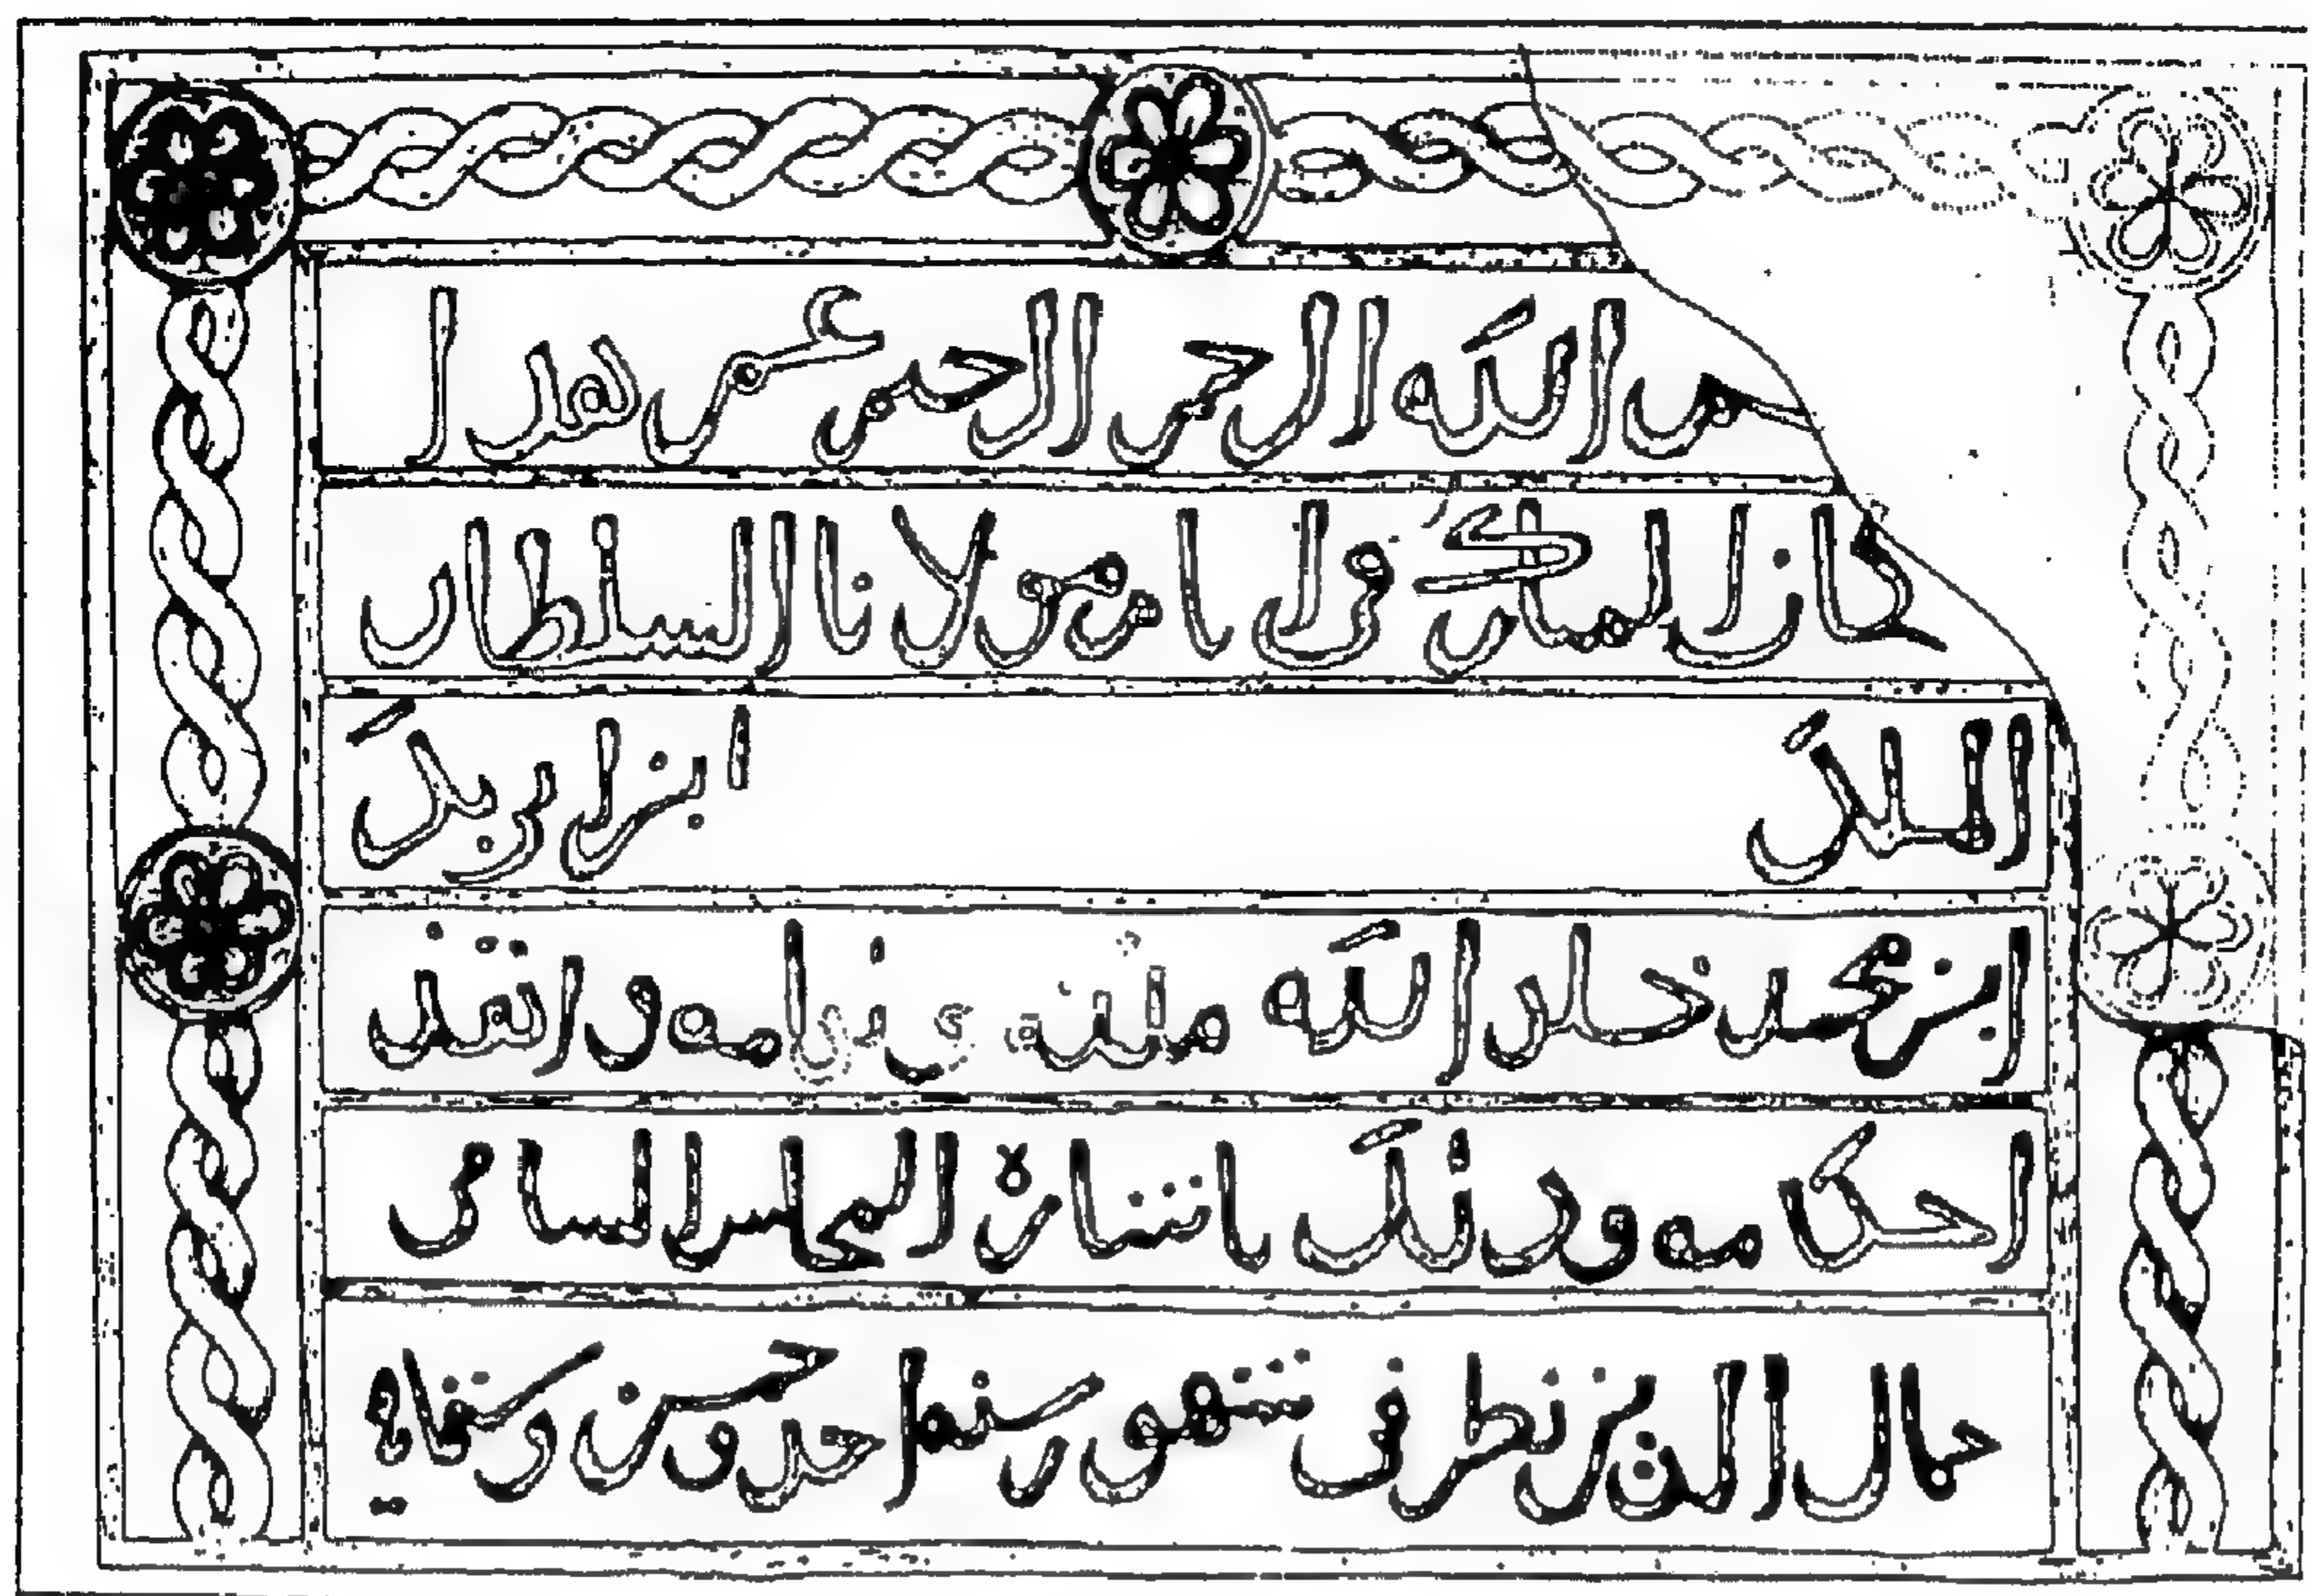 م الله الرحمن الرحيم عمر هذا ا
خان المبارك في ايام مولانا السلطان
الملك
ابن محمد خلد الله ايامه وانفذ
احكامه وذلك باشارة المجلس السامي
جمال الدين نظر في شهور سنة احد وخمسين وستماية